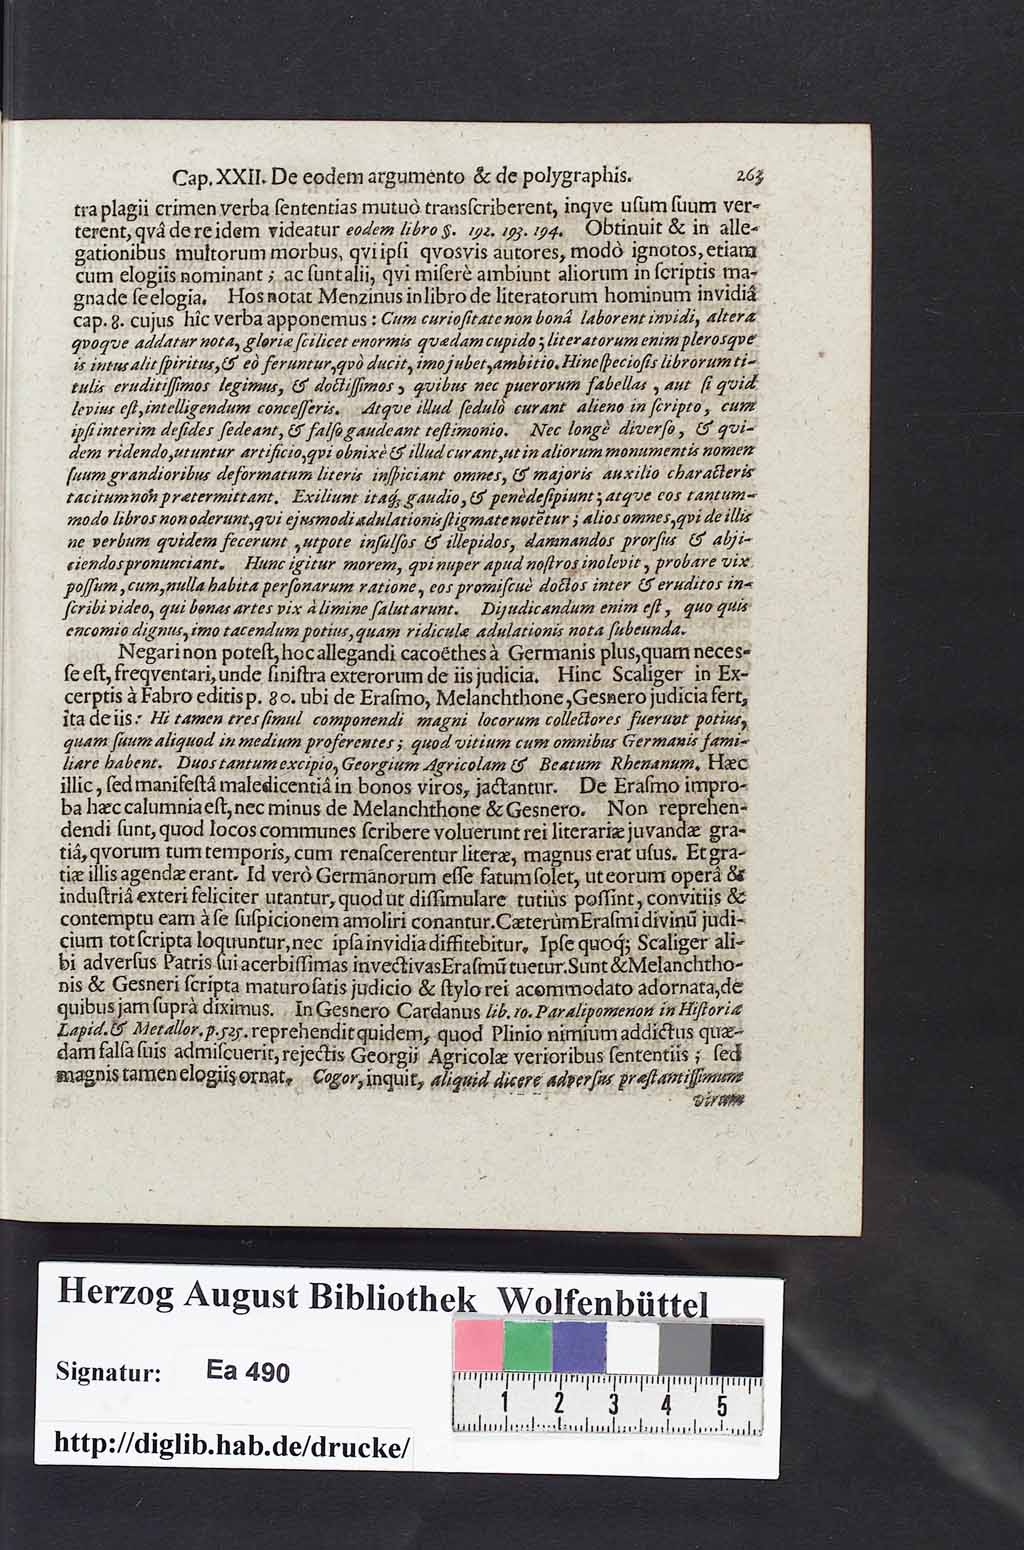 Cap. XXII. De eodem argumento & de polygraphis. 263
tra plagii crimen verba ſententias mutuò tranſcriberent, inqve uſum ſuum ver-
terent, qvâ de re idem videatur eodem libro §. 192. 193. 194. Obtinuit & in alle-
gationibus multorum morbus, qvi ipſi qvosvis autores, modò ignotos, etiam
cum elogiis nominant; ac ſunt alii, qvi miſerè ambiunt aliorum in ſcriptis ma-
gna de ſe elogia. Hos notat Menzinus in libro de literatorum hominum invidiâ
cap. 8. cujus hîc verba apponemus: Cum curioſitate non bonâ laborent invidi, altera
qvoque addatur nota, gloriæ ſcilicet enormis quædam cupido; literatorum enim plerosqve
is intus alit ſpiritus, & eò feruntur, qvò ducit, imo jubet, ambitio. Hinc ſpecioſis librorum ti-
tulis eruditiſſimos legimus, & doctiſſimos, quibus nec puerorum fabellas, aut ſi quid
levius eſt, intelligendum conceſſeris. Atqve illud ſedulò curant alieno in ſcripto, cum
ipſi interim deſides ſedeant, & falſo gaudeant teſtimonio. Nec longè diverſo, & qvi-
dem ridendo, utuntur artificio, qvi obnixè & illud curant, ut in aliorum monumentis nomen
ſuum grandioribus deformatum literis inſpiciant omnes, & majoris auxilio characteris
tacitum non prætermittant. Exiliunt itaq; gaudio, & penè deſipiunt; atqve eos tantum-
modo libros non oderunt, qvi ejusmodi adulationis ſtigmate notẽtur; alios omnes, qvi de illis
ne verbum qvidem fecerunt, utpote inſulſos & illepidos, damnandos prorſus & abji-
ciendos pronunciant. Hunc igitur morem, qvi nuper apud noſtros inolevit, probare vix
poſſum, cum, nulla habita perſonarum ratione, eos promiſcuè doctos inter & eruditos in-
ſcribi video, qui bonas artes vix à limine ſalutarunt. Dijudicandum enim eſt, quo quis
encomio dignus, imo tacendum potius, quam ridiculæ adulationis nota ſubeunda.
Negari non poteſt, hoc allegandi cacoëthes à Germanis plus, quam neces-
ſe eſt, freqventari, unde ſiniſtra exterorum de iis judicia. Hinc Scaliger in Ex-
cerptis à Fabro editis p. 80. ubi de Eraſmo, Melanchthone, Gesnero judicia fert,
ita de iis: Hi tamen tres ſimul componendi magni locorum collectores fuerunt potius,
quam ſuum aliquod in medium proferentes; quod vitium cum omnibus Germanis fami-
liare habent. Duos tantum excipio, Georgium Agricolam & Beatum Rhenanum. Hæc
illic, ſed manifeſtâ maledicentiâ in bonos viros, jactantur. De Eraſmo impro-
ba hæc calumnia eſt, nec minus de Melanchthone & Gesnero. Non reprehen-
dendi ſunt, quod locos communes ſcribere voluerunt rei literariæ juvandæ gra-
tiâ, qvorum tum temporis, cum renaſcerentur literæ, magnus erat uſus. Et gra-
tiæ illis agendæ erant. Id verò Germanorum eſſe fatum ſolet, ut eorum operâ &
induſtriâ exteri feliciter utantur, quod ut diſſimulare tutiùs poſſint, convitiis &
contemptu eam à ſe ſuſpicionem amoliri conantur. Cæterùm Eraſmi divinũ judi-
cium tot ſcripta loquuntur, nec ipſa invidia diffitebitur. Ipſe quoq; Scaliger ali-
bi adverſus Patris ſui acerbiſſimas invectivas Eraſmũ tuetur. Sunt & Melanchtho-
nis & Gesneri ſcripta maturo ſatis judicio & ſtylo rei acommodato adornata, de
quibus jam ſuprà diximus. In Gesnero Cardanus lib. 10. Paralipomenon in Hiſtoria
Lapid. & Metallor. p. 525. reprehendit quidem, quod Plinio nimium addictus quæ-
dam falſa ſuis admiſcuerit, rejectis Georgii Agricolæ verioribus ſententiis; ſed
magnis tamen elogiis ornat. Cogor, inquit, aliquid dicere adverſus præſtantiſſimum
virum
Herzog August Bibliothek Wolfenbüttel
Signatur: Ea 490
1 2 3 4 5
http://diglib.hab.de/drucke/